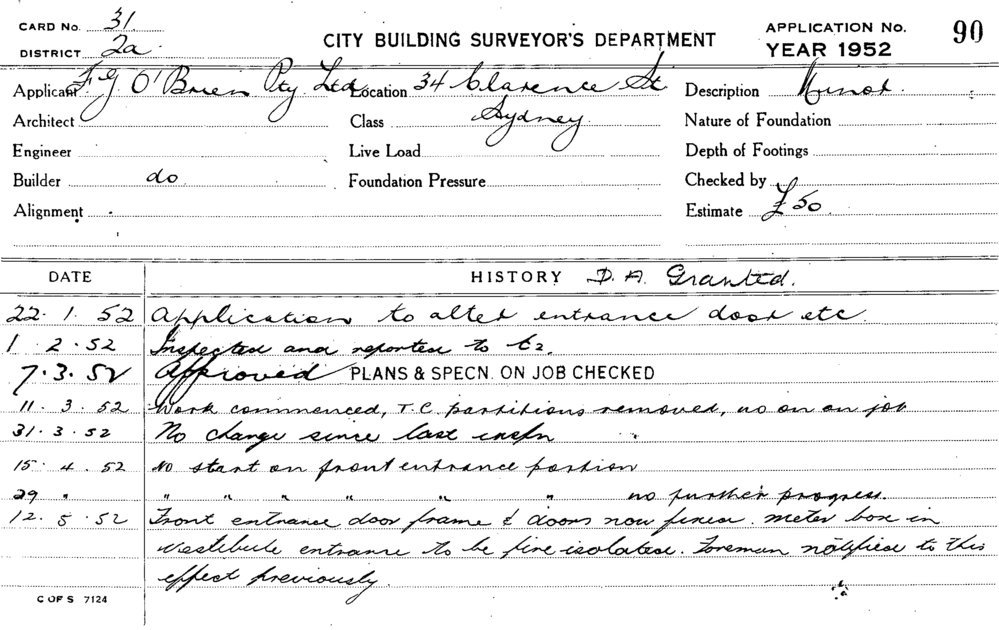 CARD No. 31
DISTRICT 2a
CITY BUILDING SURVEYOR'S DEPARTMENT
APPLICATION No. 90
YEAR 1952
Applicant F G O'Brien Pty Ltd Location 34 Clarence St Description Minor
Architect Class Sydney Nature of Foundation
Engineer Live Load Depth of Footings
Builder do Foundation Pressure Checked by
Alignment Estimate £50
DATE HISTORY D.A. Granted.
22. 1. 52 Application to alter entrance door etc
1 2. 52 Inspected and reported to
7. 3. 52 Approved PLANS & SPECN. ON JOB CHECKED
11. 3. 52 Work commenced, T.C. partitions removed, no on on job
31. 3. 52 No change since last inspn
15. 4. 52 No start on front entrance portion
29 " " " " " " " no further progress.
12. 5. 52 Front entrance door frame & doors now fixed. meter box in
vestibule entrance to be fire isolated. Foreman notified to this
effect previously.
C OF S 7124